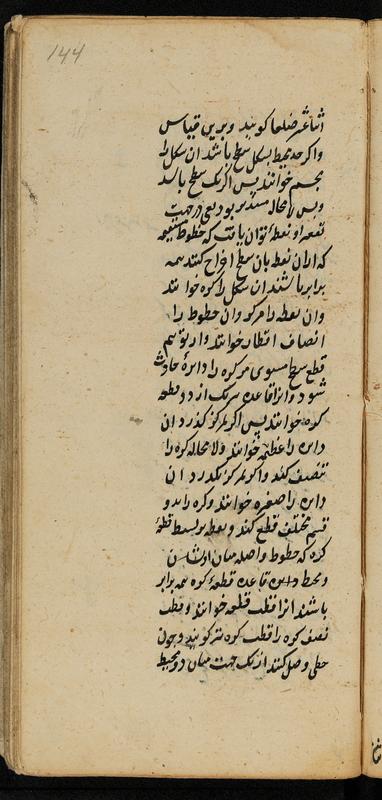 144
اثناعشر ضلعا کویند و برین قیاس
واکر حد محیط بشکل سطح باشد ان شکل را
مجسم خوانند پس اکر یک سطح باشد
و بس لامحاله مستدیر بود یعنی در جهت
تقعر او نقطهٔ توان یافت که خطوط مستقیمه
که ازان نقطه بان سطح اخراج کنند همه
برابر باشند ان شکل را کره خوانند
وان نقطه را مرکز وان خطوط را
انصاف اقطار خوانند و از توهم
قطع سطح مستوی مر کره را دایرهٔ حادث
شود و انرا قاعده هر یک از دو قطعه
کره خوانند پس اکر بمرکز کذرد ان
دایره را عظیمه خوانند ولا محاله کره را
تنصیف کند واکر بمرکز نکذرد ان
دایره را صغیره خوانند و کره را بدو
قسم مختلف قطع کند و نقطه بر بسیط قطعهٔ
کره که خطوط واصله میان او
و محیط دایره قاعده قطعهٔ کره همه برابر
باشند انرا قطب قطعه خوانند و قطب
نصف کره را قطب کره نیز کویند و چون
خطی وصل کنند از یک جهت میان دو محیط